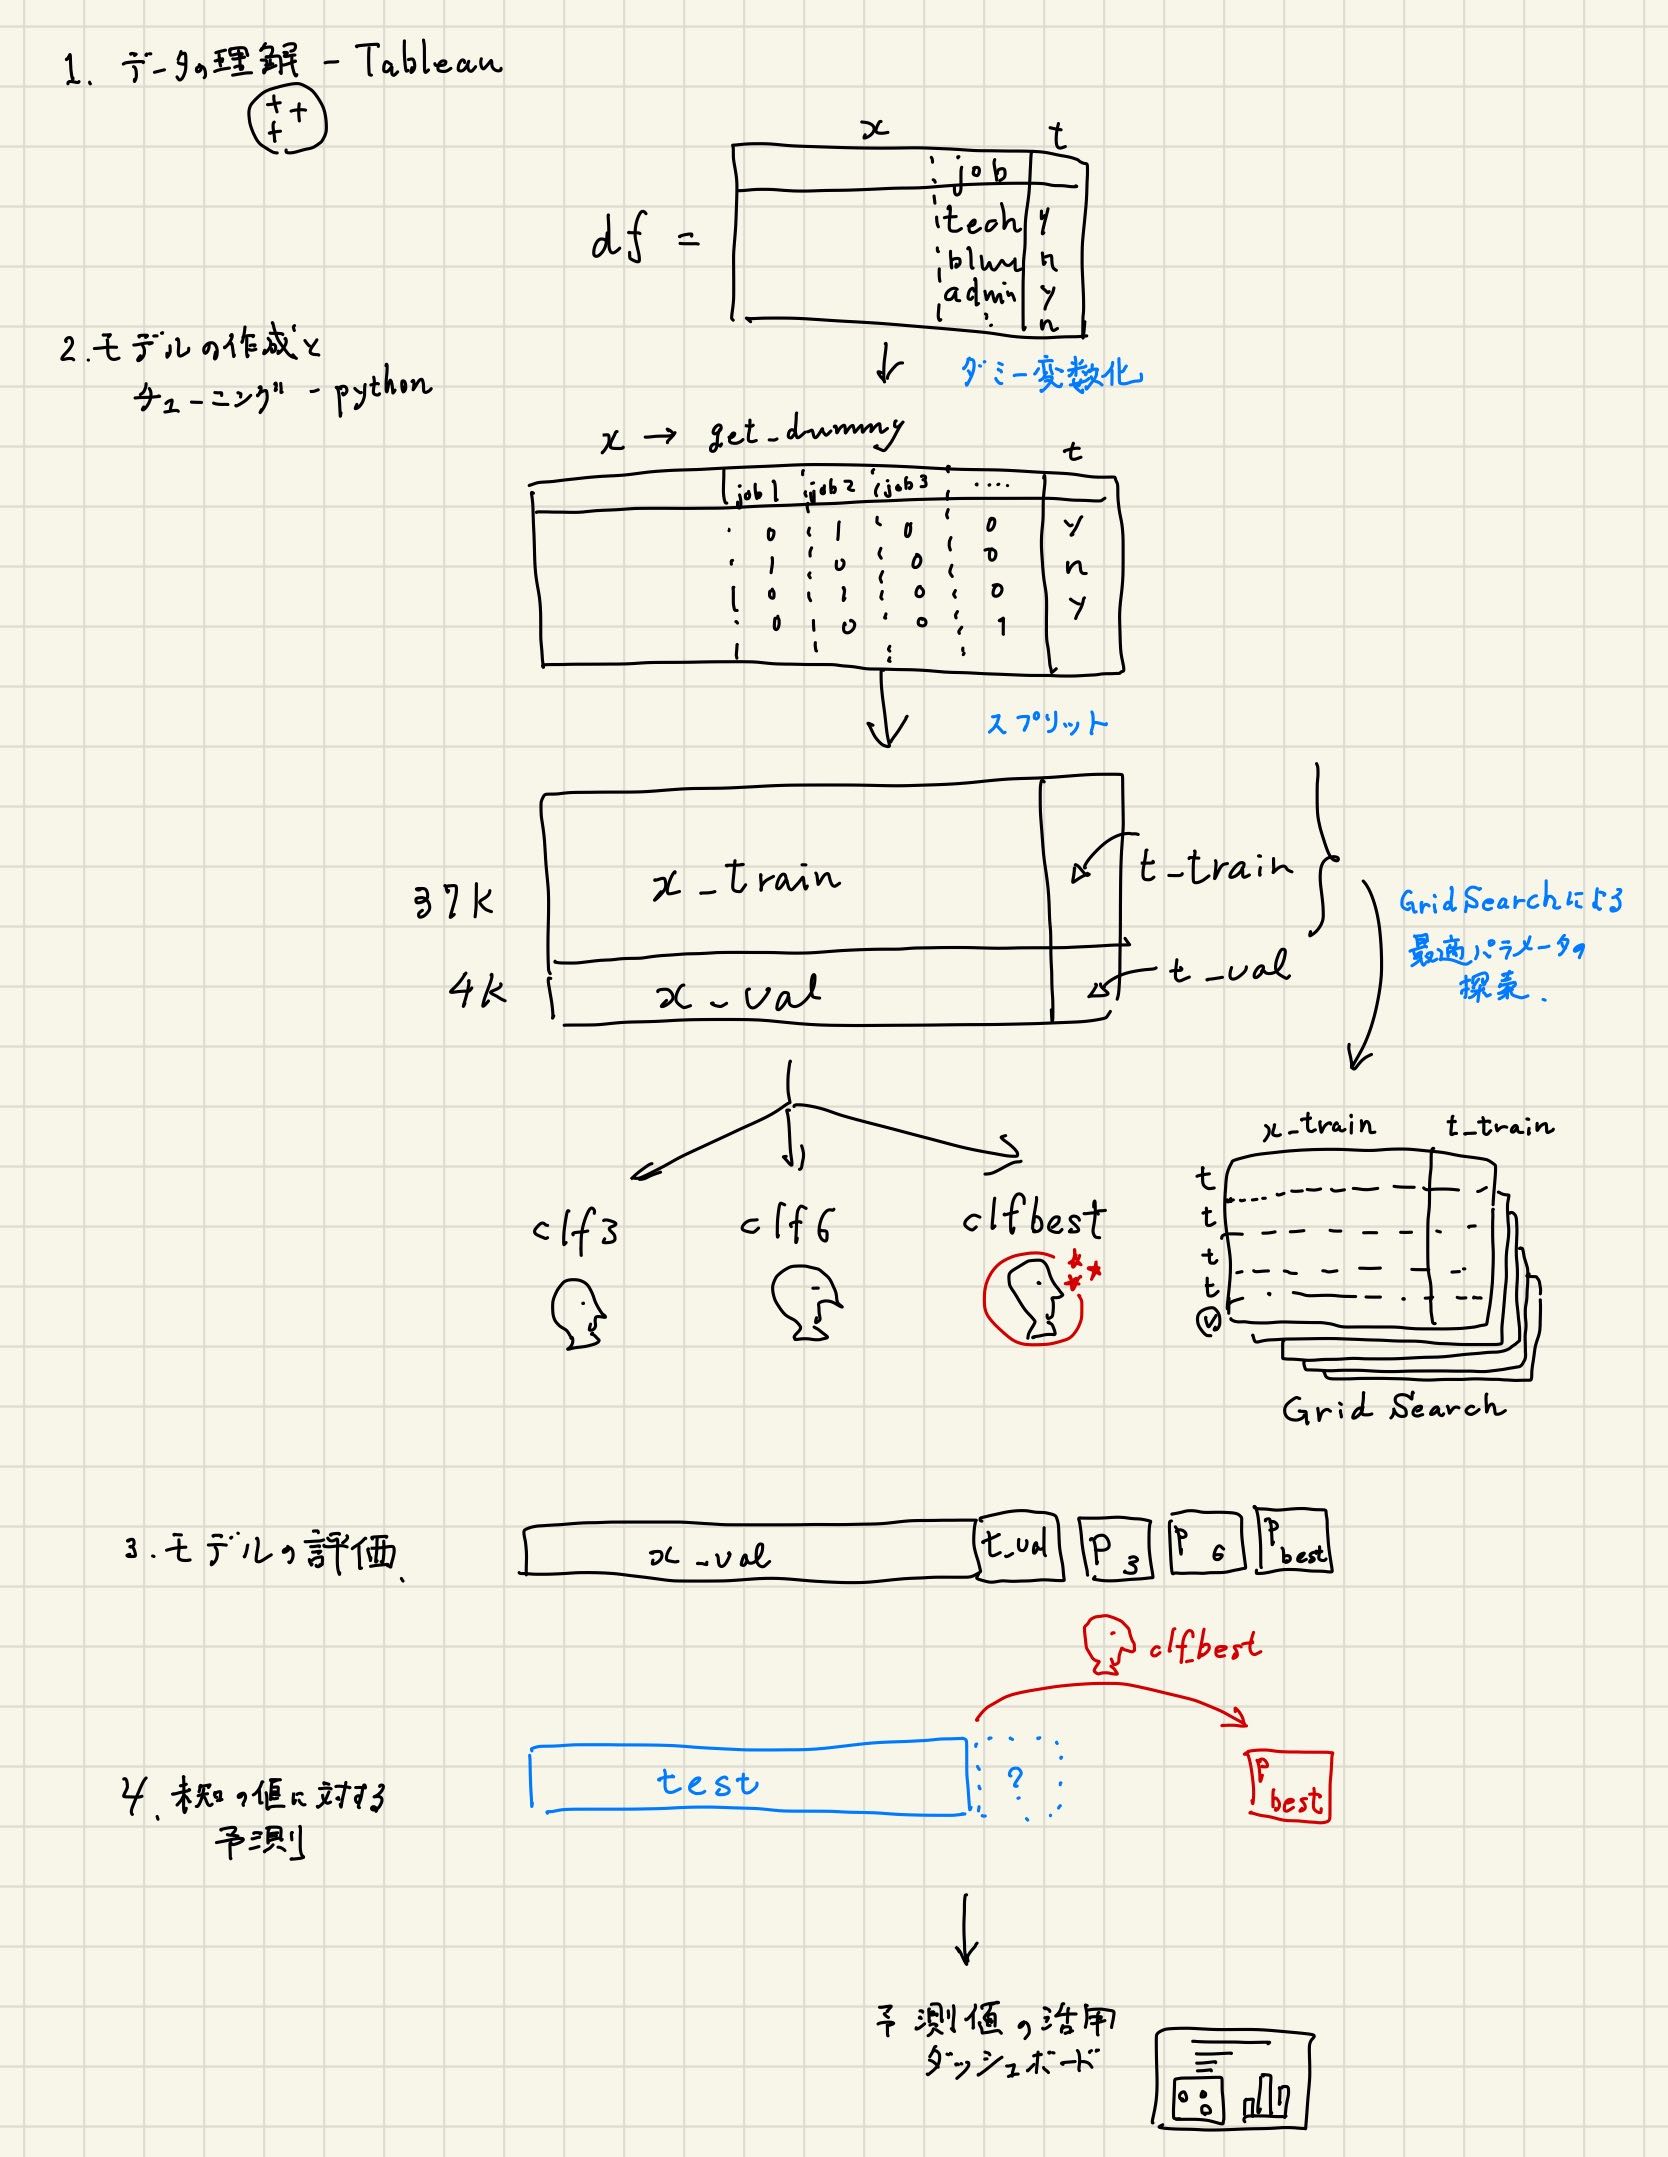 1. データの理解 - Tableau
x t
job
df =
tech y
blue n
admin y
n
2. モデルの作成と
チューニング - python
ダミー変数化
x → get_dummy t
job1 job2 job3 ....
0 1 0 0 y
1 0 0 0 n
0 1 0 0 y
0 0 0 1
スプリット
37K x_train t_train
4K x_val t_val
GridSearchによる
最適パラメータの
探索.
clf3 clf6 clfbest
x_train t_train
t
t
t
t
v
Grid Search
3. モデルの評価.
x_val t_val P3 P6 Pbest
clfbest
4. 未知の値に対する
予測
test ? Pbest
予測値の活用
ダッシュボード